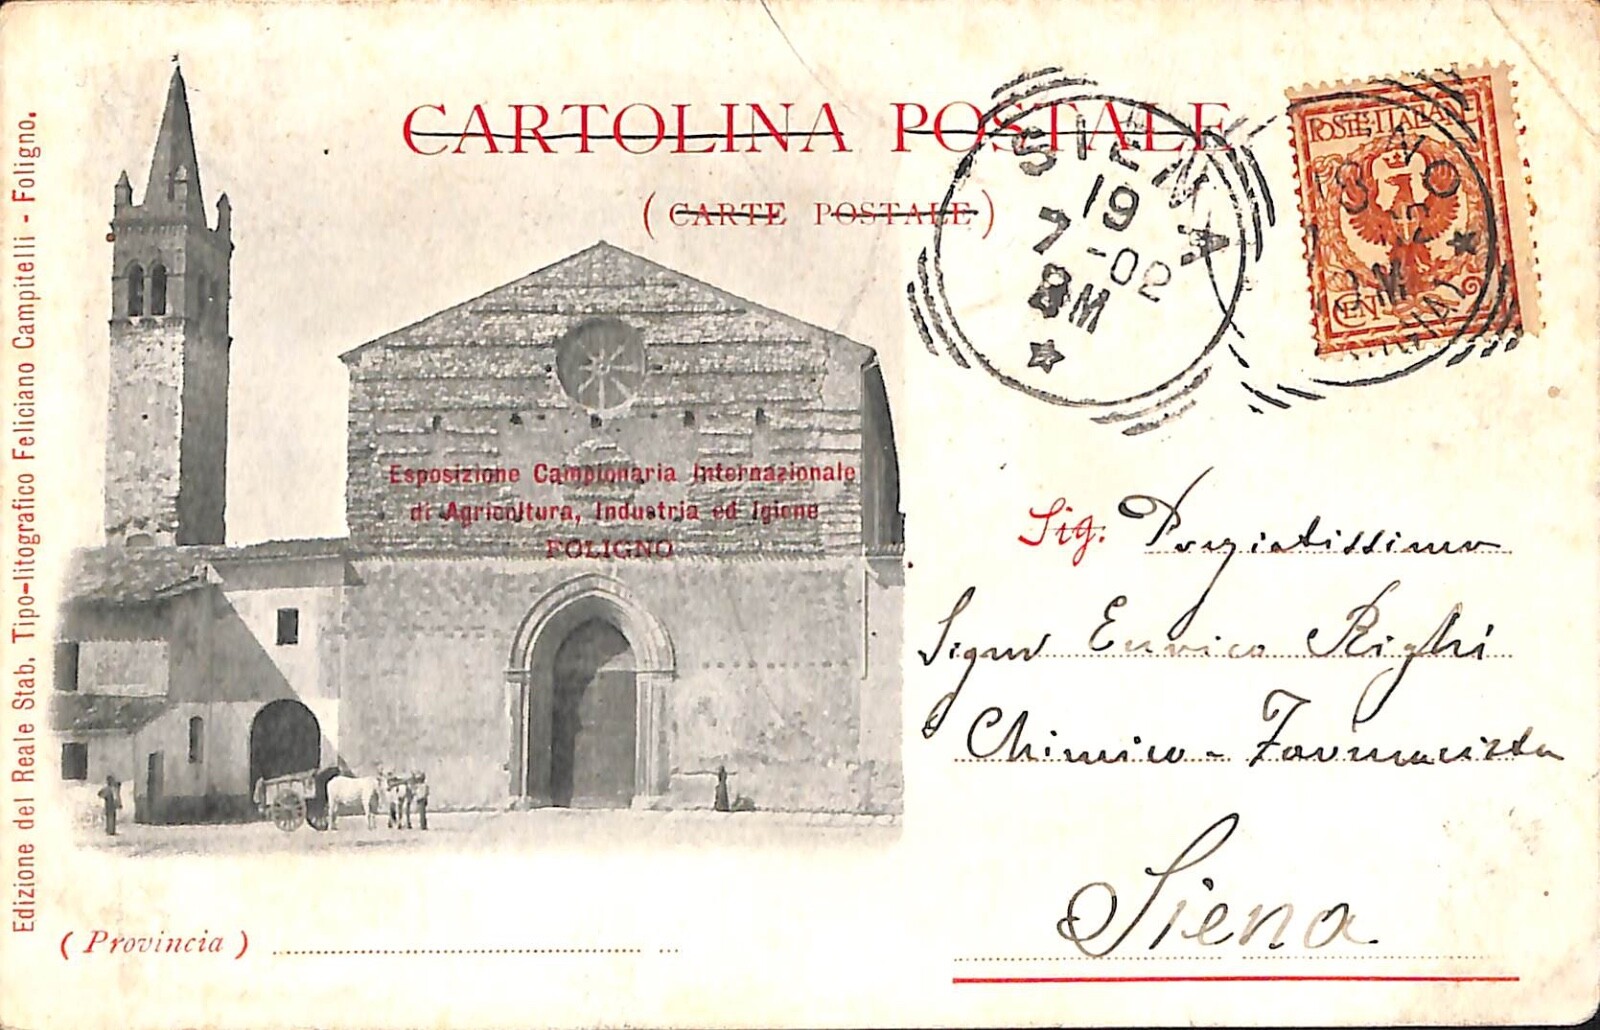 CARTOLINA POSTALE
(CARTE POSTALE)
SIENA
19
7 -02
8M
POSTE ITALIANE
18
CEN
Edizione del Reale Stab. Tipo-litografico Feliciano Campitelli - Foligno.
Esposizione Campionaria Internazionale
di Agricoltura, Industria ed Igiene
FOLIGNO
Sig. Pregiatissimo
Signor Enrico Righi
Chimico - Farmacista
Siena
(Provincia)